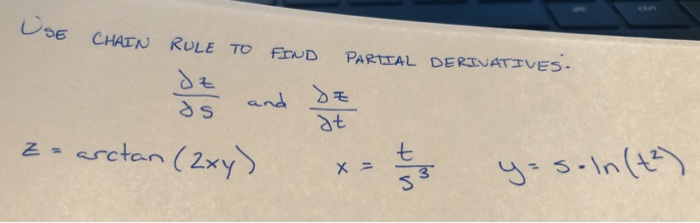 USE CHAIN RULE TO FIND PARTIAL DERIVATIVES.
∂z/∂s and ∂z/∂t
z = arctan(2xy) x = t/s³ y = s·ln(t²)